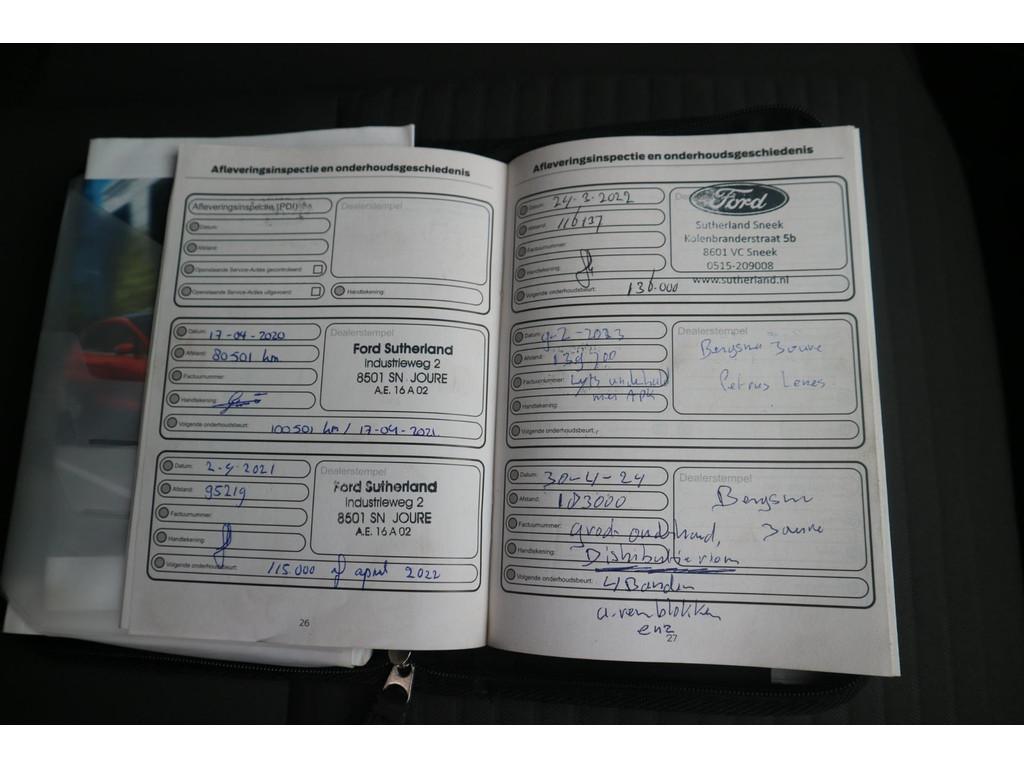 Afleveringsinspectie en onderhoudsgeschiedenis
Afleveringsinspectie (PDI)
Datum:
Afstand:
Openstaande Service-Acties gecontroleerd:
Openstaande Service-Acties uitgevoerd:
Dealerstempel
Handtekening:
Datum: 17-04-2020
Afstand: 80501 km
Factuurnummer:
Handtekening:
Volgende onderhoudsbeurt: 100501 km / 17-04-2021.
Dealerstempel
Ford Sutherland
Industrieweg 2
8501 SN JOURE
A.E. 16 A 02
Datum: 2-4-2021
Afstand: 95219
Factuurnummer:
Handtekening:
Volgende onderhoudsbeurt: 115.000 of april 2022
Dealerstempel
Ford Sutherland
Industrieweg 2
8501 SN JOURE
A.E. 16 A 02
26
Afleveringsinspectie en onderhoudsgeschiedenis
Datum: 24-3-2022
Afstand: 116137
Factuurnummer:
Handtekening:
Volgende onderhoudsbeurt: 136.000
Ford
Sutherland Sneek
Kolenbranderstraat 5b
8601 VC Sneek
0515-209008
www.sutherland.nl
Datum: 9-2-2023
Afstand: 139700
Factuurnummer:
met APK
Handtekening:
Volgende onderhoudsbeurt:
Dealerstempel
Bergsma Joure
Petrus
Datum: 30-4-24
Afstand: 183000
Factuurnummer: groot onderhoud,
Handtekening: Distributieriem
Volgende onderhoudsbeurt: 4 Banden
Dealerstempel
Bergsma
Joure
a. remblokken
enz
27